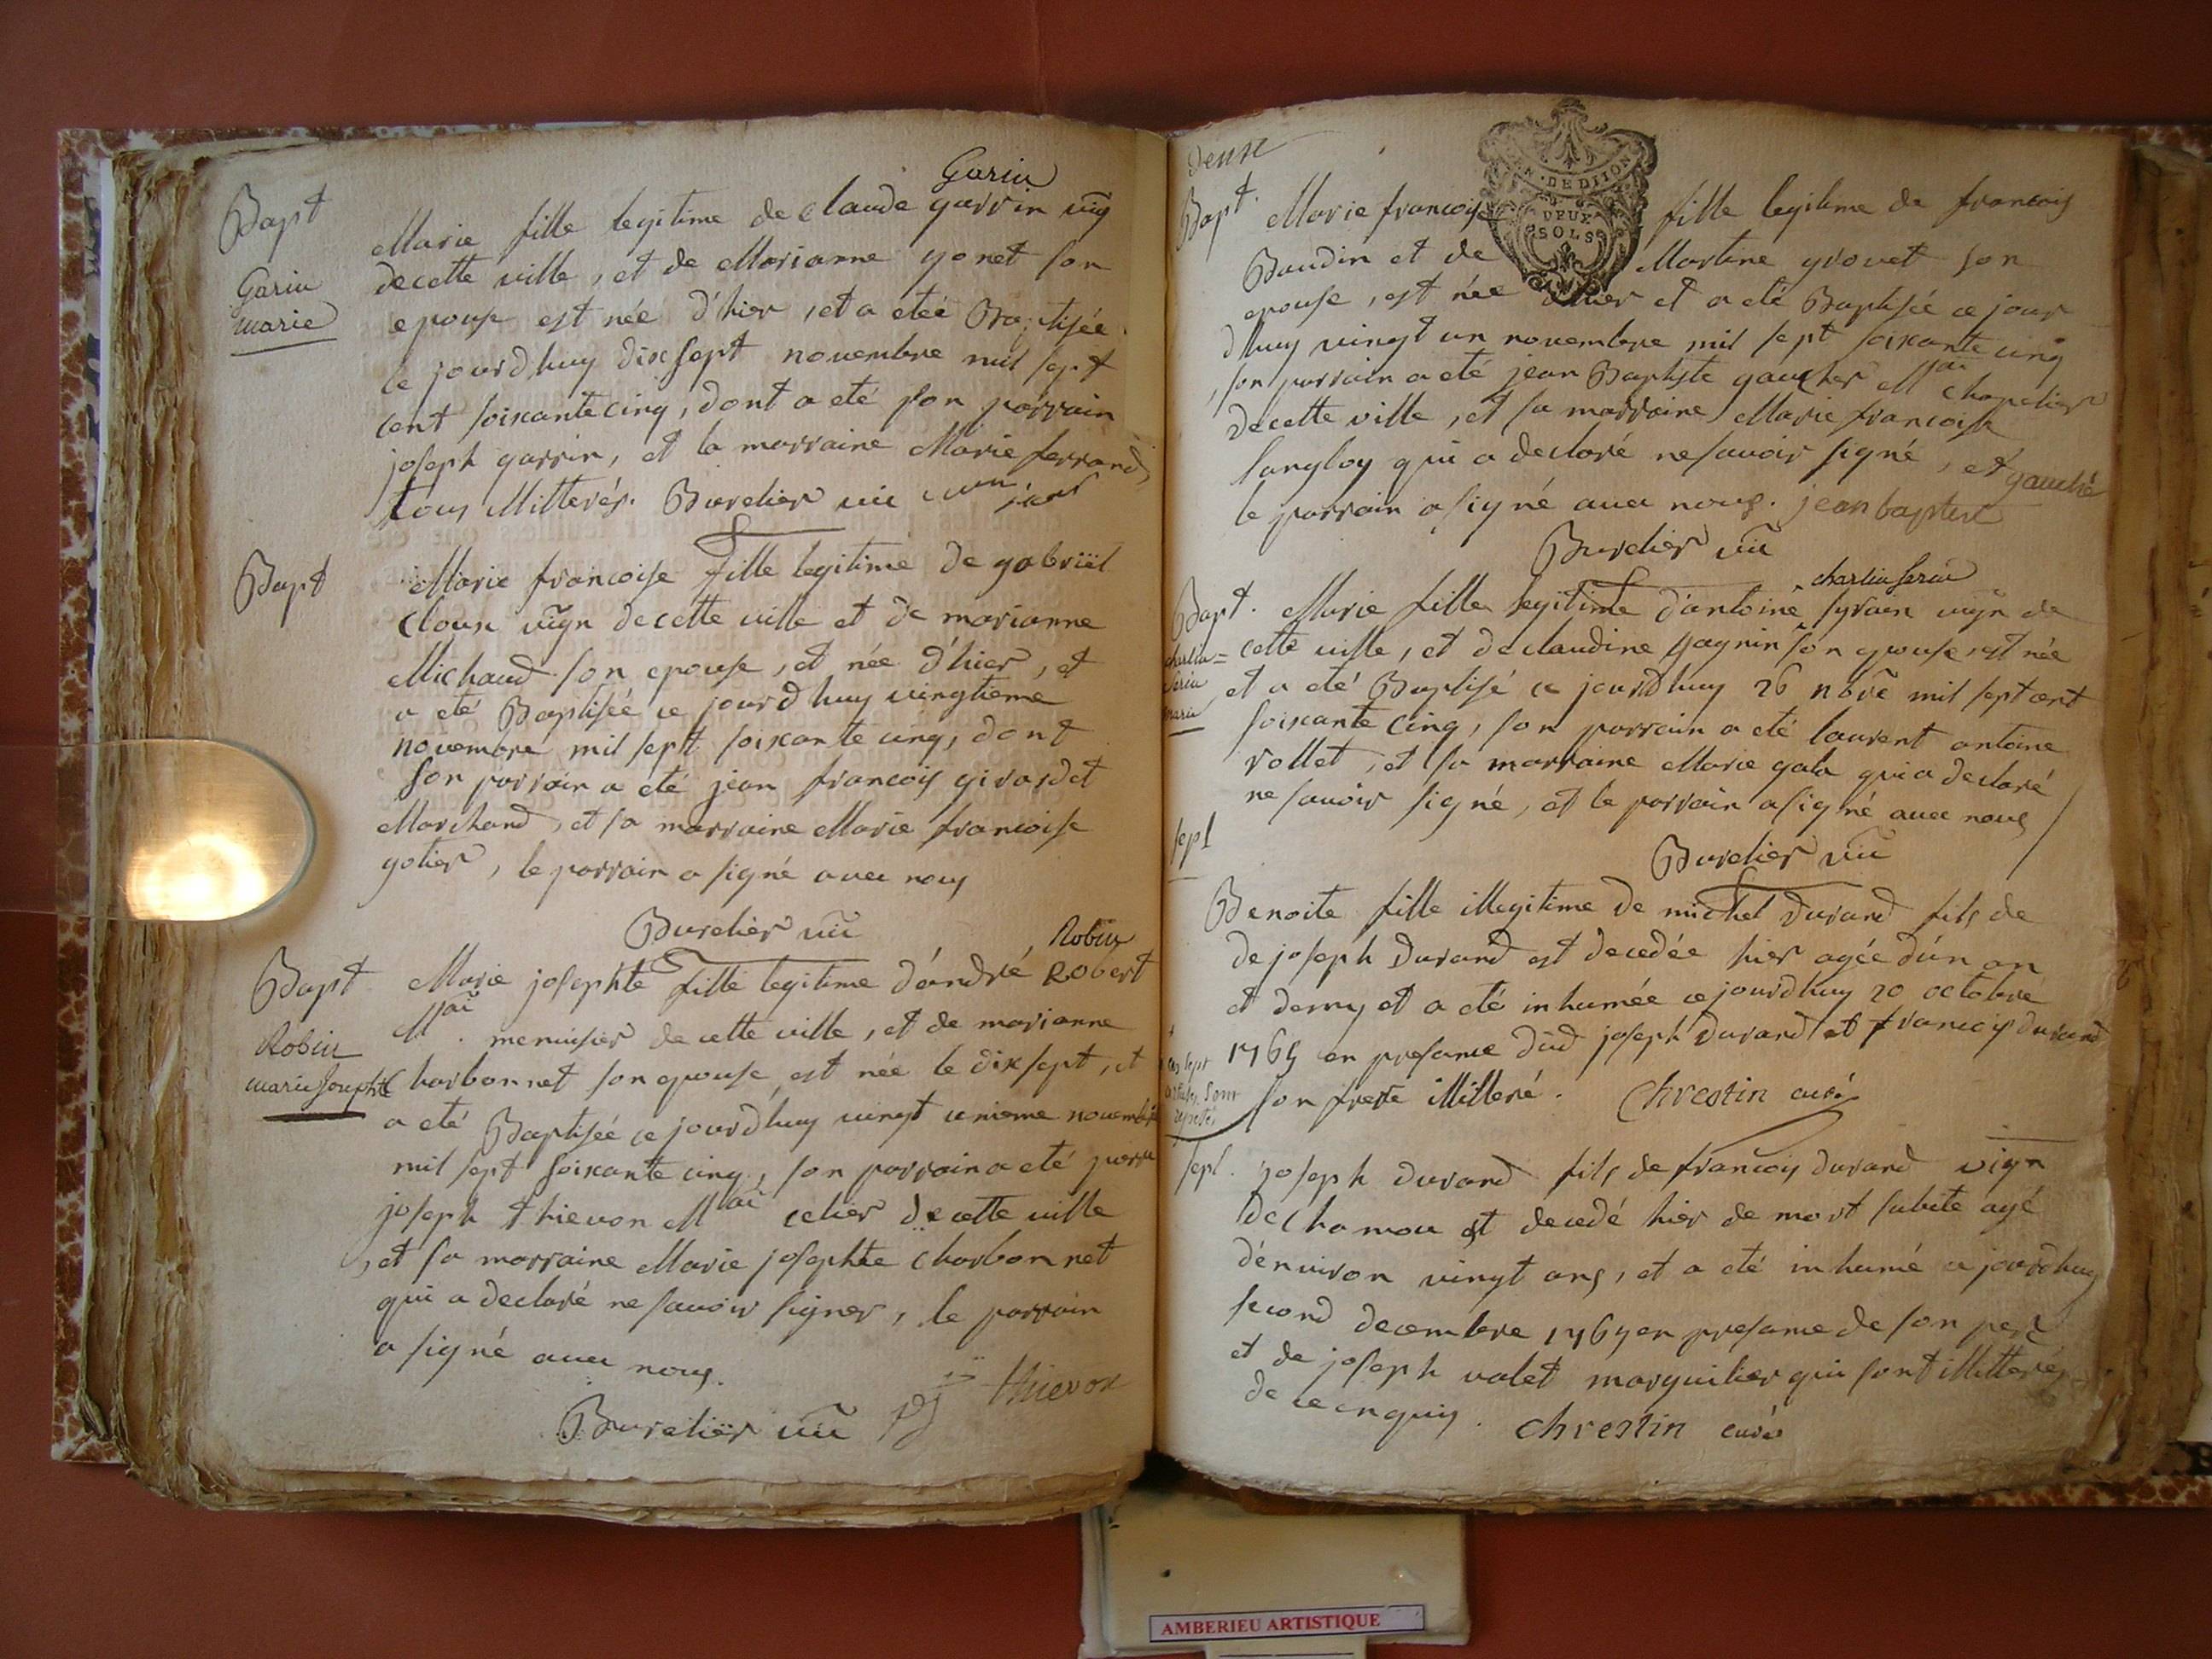 Bapt
Garin
marie
Garin
Marie fille legitime de claude garrin vig
decette ville, et de Marianne yonet son
epouse est née d'hier, et a eteé Baptisée
ce jourdhuy dixsept novembre mil sept
cent soixantecinq, dont a eté son parrain
joseph garrin, et la marraine Marie ferrand,
tous illitterés. Burelier vic
Bapt
Marie francoise fille legitime de gabriël
cloux vign decette ville et de marianne
Michaud son epouse, et née d'hier, et
a eté Baptisée ce jourdhuy vingtieme
novembre mil sept soixante cinq, dont
son parrain a eté jean francois girardet
Marchand, et sa marraine Marie francoise
gotier, le parrain a signé avec nous
Burelier vic
Bapt
Robin
marie Josephte
Robin
Marie josephte fille legitime d'andré Robert
M. menuisier de cette ville, et de marianne
charbonnet son epouse est née le dixsept, et
a eté Baptisée ce jourdhuy vingt unieme novembre
mil sept soixante cinq, son parrain a eté pierre
joseph thievon M celier decette ville
, et sa marraine Marie josephte charbonnet
qui a declaré ne savoir signer, le parrain
a signé avec nous.
Burelier vic pj thievon
Bapt. Marie francoise fille legitime de francois
EN. DE DIJON
DEUX
SOLS
Baudin et de Martine grovet son
epouse, est née d'hier et a eté Baptisée ce jour
dhuy vingt un novembre mil sept soixante cinq
, son parrain a eté jean Baptiste gaucher M chapelier
decette ville, et sa marraine Marie francoise
langloy qui a declaré ne savoir signé, et
le parrain a signé avec nous. jean baptiste gauché
Burelier vic
charlin serin
Bapt. Marie fille legitime d'antoine syrain vign de
charlin=
serin
marie
cette ville, et de claudine gagnin son epouse, est née
et a eté Baptisé ce jourdhuy 26 nbre mil sept cent
soixante cinq, son parrain a eté laurent antoine
rollet, et sa marraine Marie gala qui a declaré
ne savoir signé, et le parrain a signé avec nous
Burelier vic
sepl
Benoite fille illegitime de michel durand fils de
de joseph Durand est decedée hier agée d'un an
et demy et a eté inhumée ce jourdhuy 20 octobre
1765 en presance dud joseph Durand et francois durand
son frere illitteré. Chrestin curé
sepl. joseph durand fils de francois durand vign
de chamou est decedé hier de mort subite agé
d'environ vingt ans, et a eté inhumé ce jourdhuy
second decembre 1765 en presance de son pere
et de joseph valet marguilier qui sont illitterés
de ce enquis. Chrestin curé
AMBERIEU ARTISTIQUE